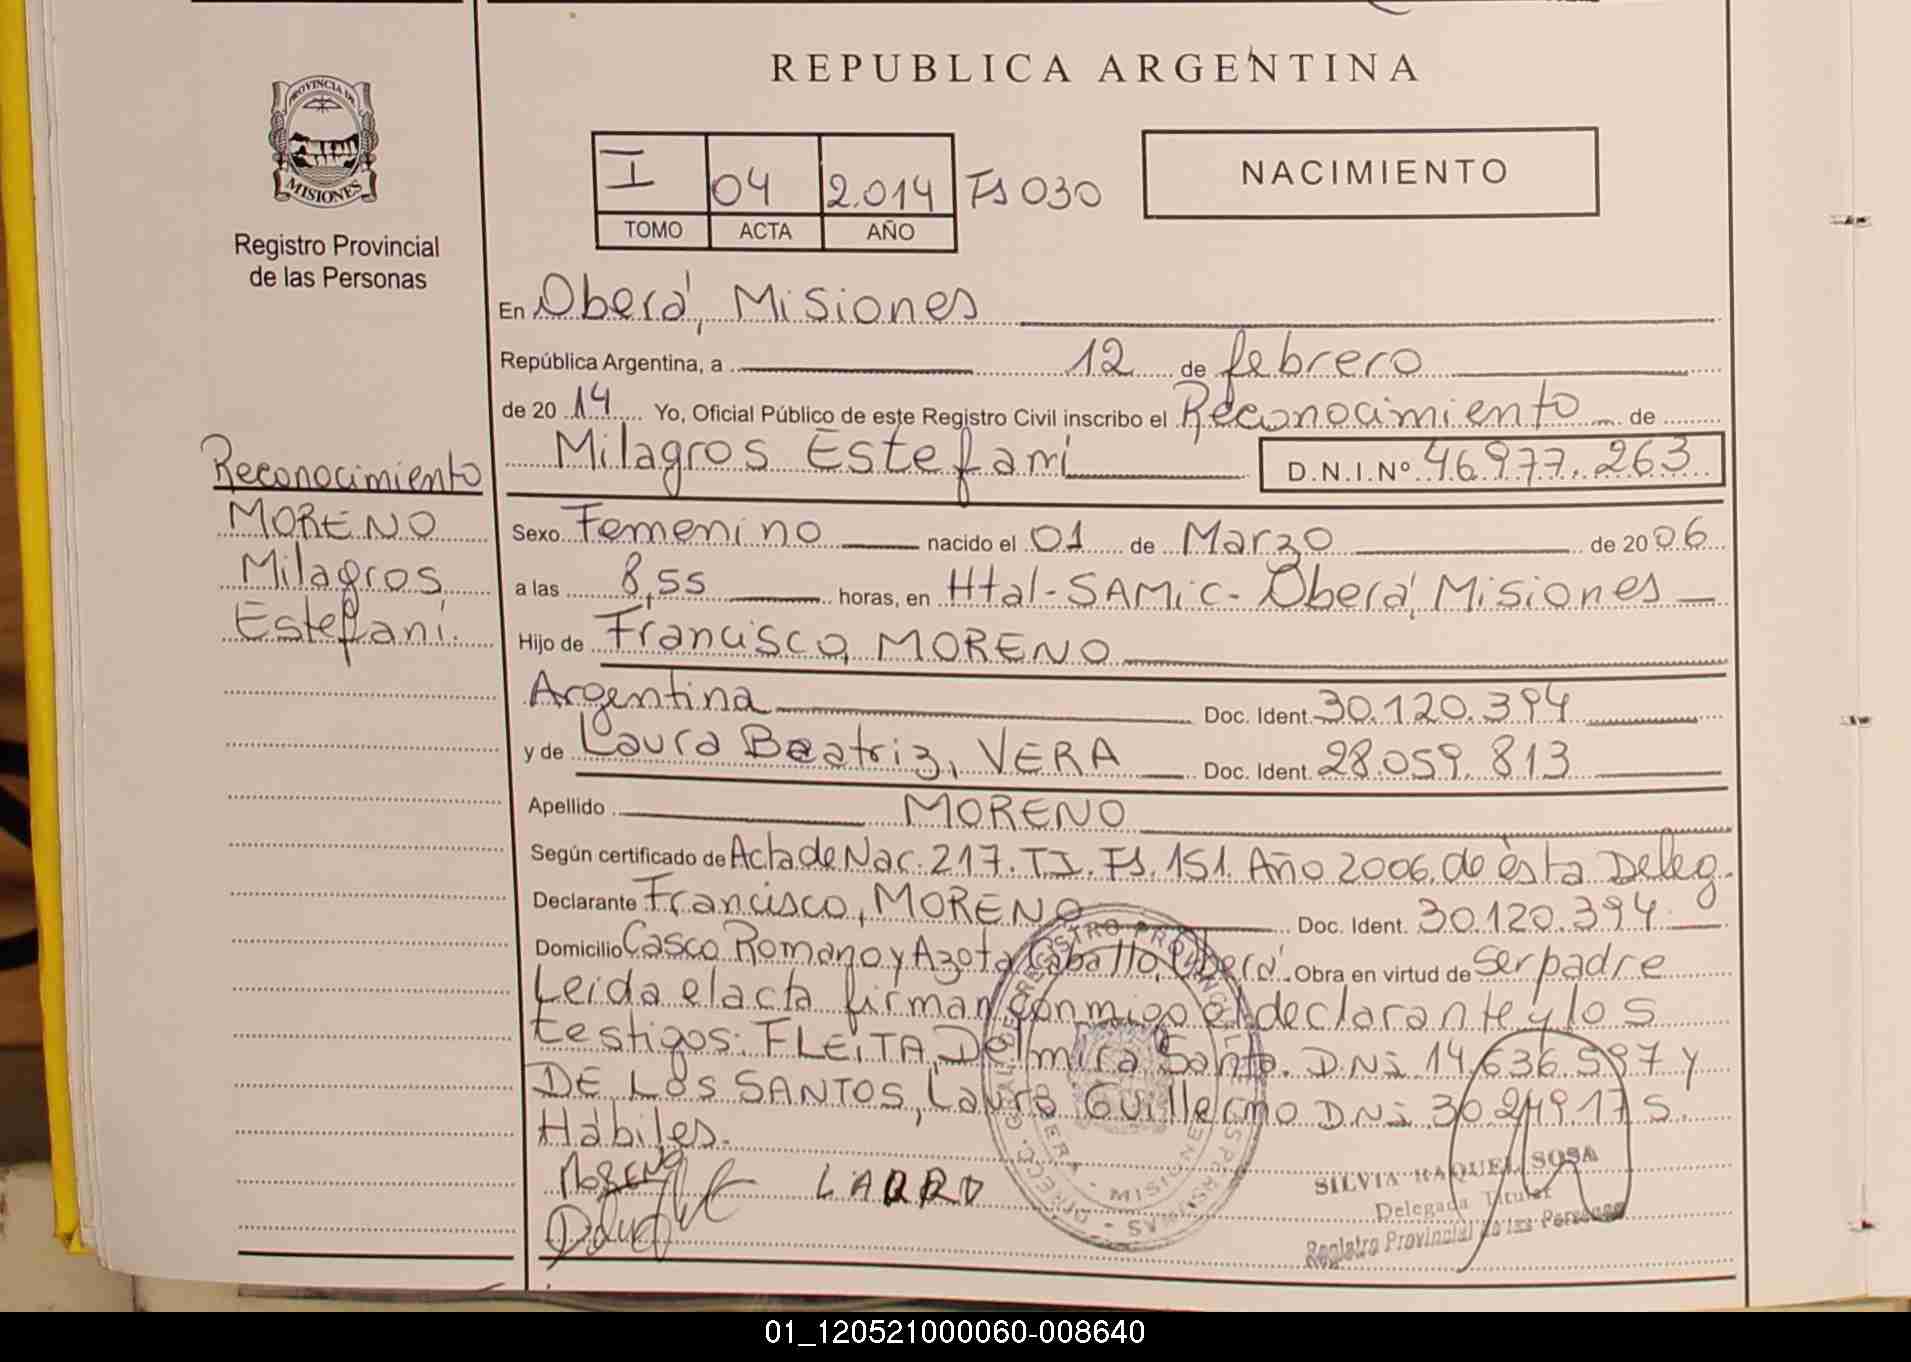 REPUBLICA ARGENTINA
PROVINCIA DE
MISIONES
Registro Provincial
de las Personas
I 04 2.014 Fs 030
TOMO ACTA AÑO
NACIMIENTO
En Oberá, Misiones
República Argentina, a 12 de febrero
de 2014 Yo, Oficial Público de este Registro Civil inscribo el Reconocimiento de
Milagros Estefaní D.N.I.Nº 46.977.263
Reconocimiento
MORENO
Milagros
Estefaní.
Sexo Femenino nacido el 01 de Marzo de 2006
a las 8,55 horas, en Htal-SAMiC- Oberá, Misiones
Hijo de Francisco, MORENO
Argentina Doc. Ident. 30.120.394
y de Laura Beatriz, VERA Doc. Ident. 28.059.813
Apellido MORENO
Según certificado de Acta de Nac. 217. TI. Fs. 151. Año 2006. de ésta Deleg.
Declarante Francisco, MORENO Doc. Ident. 30.120.394.
Domicilio Casco Romano y Azota Caballo, Oberá. Obra en virtud de ser padre
Leida el acta firman conmigo el declarante y los
testigos: FLEITA, Delmira Santa. DNi 14.636.597 y
DE LOS SANTOS, Laura Guillermo DNi 30.249.175.
Hábiles.
MORENO
SILVIA RAQUEL SOSA
Delegada Titular
Registro Provincial de las Personas
01_120521000060-008640